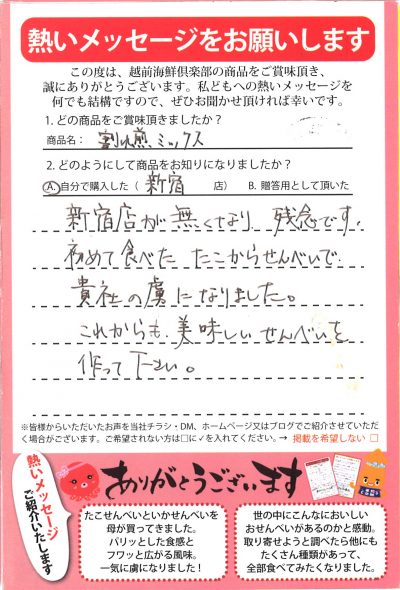 熱いメッセージをお願いします
この度は、越前海鮮倶楽部の商品をご賞味頂き、
誠にありがとうございます。私どもへの熱いメッセージを
何でも結構ですので、ぜひお聞かせ頂ければ幸いです。
1. どの商品をご賞味頂きましたか?
商品名: 割れ煎ミックス
2. どのようにして商品をお知りになりましたか?
A. 自分で購入した ( 新宿 店) B. 贈答用として頂いた
新宿店が無くなり 残念です.
初めて食べた たこからせんべいで
貴社の虜になりました。
これからも 美味しいせんべいを
作って下さい。
※皆様からいただいたお声を当社チラシ・DM、ホームページ又はブログでご紹介させていただ
く場合がございます。ご希望されない方は□に✓を入れてください。→ 掲載を希望しない □
熱いメッセージ
ご紹介いたします
ありがとうございます
たこせんべいといかせんべいを
母が買ってきました。
パリッとした食感と
フワッと広がる風味。
一気に虜になりました!
世の中にこんなにおいしい
おせんべいがあるのかと感動。
取り寄せようと調べたら他にも
たくさん種類があって、
全部食べてみたくなりました。